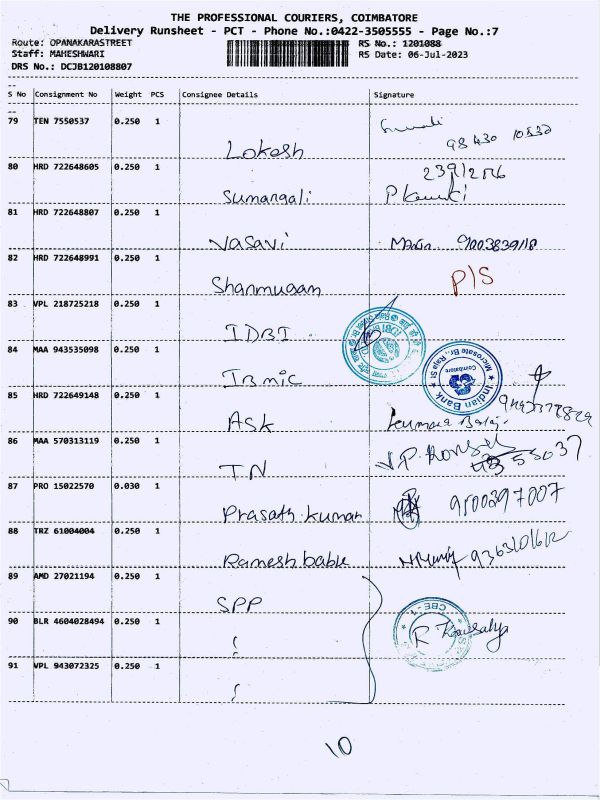 THE PROFESSIONAL COURIERS, COIMBATORE
Delivery Runsheet - PCT - Phone No.:0422-3505555 - Page No.:7
Route: OPANAKARASTREET RS No.: 1201088
Staff: MAHESHWARI RS Date: 06-Jul-2023
DRS No.: DCJB120108807
S No Consignment No Weight PCS Consignee Details Signature
79 TEN 7550537 0.250 1
Lokesh 98430 10532
80 HRD 722648605 0.250 1
Sumangali
81 HRD 722648807 0.250 1
Vasavi
82 HRD 722648991 0.250 1
Shanmugam P/S
83 VPL 218725218 0.250 1
IDBI
84 MAA 943535098 0.250 1
IB mic
Indian Bank
Microsate Br., Raja St
Coimbatore
85 HRD 722649148 0.250 1
ASK
86 MAA 570313119 0.250 1
TN
87 PRO 15022570 0.030 1
Prasath kumar 9500297007
88 TRZ 61004004 0.250 1
Ramesh babu
89 AMD 27021194 0.250 1
SPP
90 BLR 4604028494 0.250 1
CBE - 1
R Kausalya
91 VPL 943072325 0.250 1
10